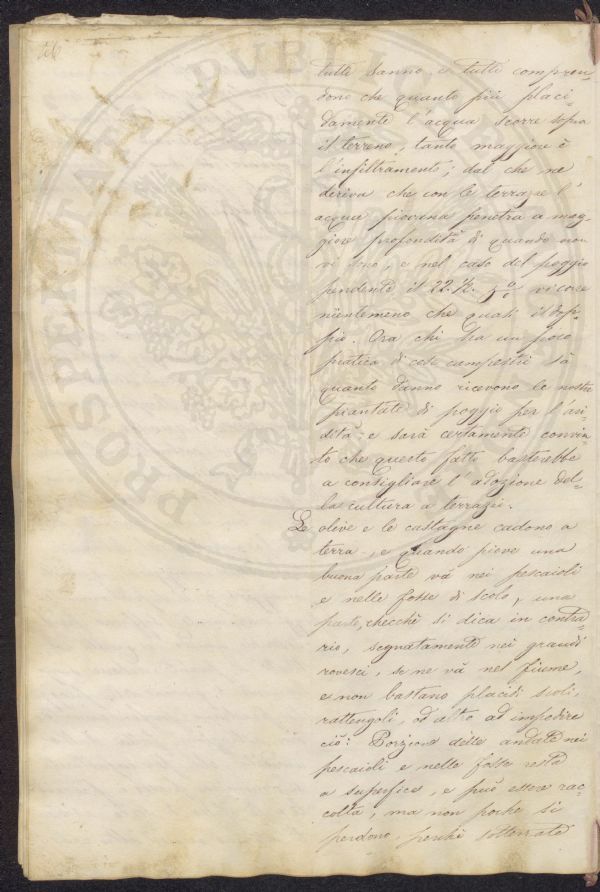 26
tutti sanno e tutti compren-
dono che quanto più placi-
damente l'acqua scorre sopra
il terreno, tanto maggiore è
l'infiltramento; dal che ne
deriva che con le terrazze l'
acqua piovana penetra a mag-
giore profondità di quando non
vi sono, e nel caso del poggio
pendente il 22.½. vi core
nientemeno che quasi il dop-
pio. Ora chi ha un poco
pratica di cose campestri sà
quanto danno ricevono le nostre
piantate di poggio per l'ari-
dità e sarà certamente convin-
to che questo fatto basterebbe
a consigliare l'adozione del-
la cultura a terrazzi.
Le olive e le castagne cadono a
terra, e quando piove una
buona parte và nei pescaioli
e nelle fosse di scolo, una
parte, checchè si dica in contra-
rio, segnatamente nei grandi
rovesci, se ne và nel fiume,
e non bastano placidi scoli,
rattengoli, od altro ad impedire
ciò: Porzione delle andate nei
pescaioli e nelle fosse resta
a superfice, e può essere rac-
colta, ma non poche si
perdono, perchè sotterrate
PROSPERITATI PUBLI